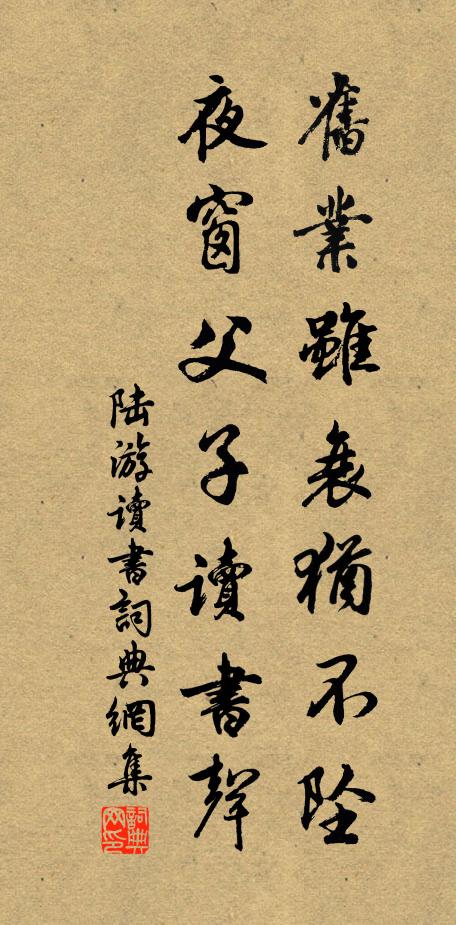 舊業雖衰猶不墜
夜窗父子讀書聲
陆游讀書詞典網集
詞典网印